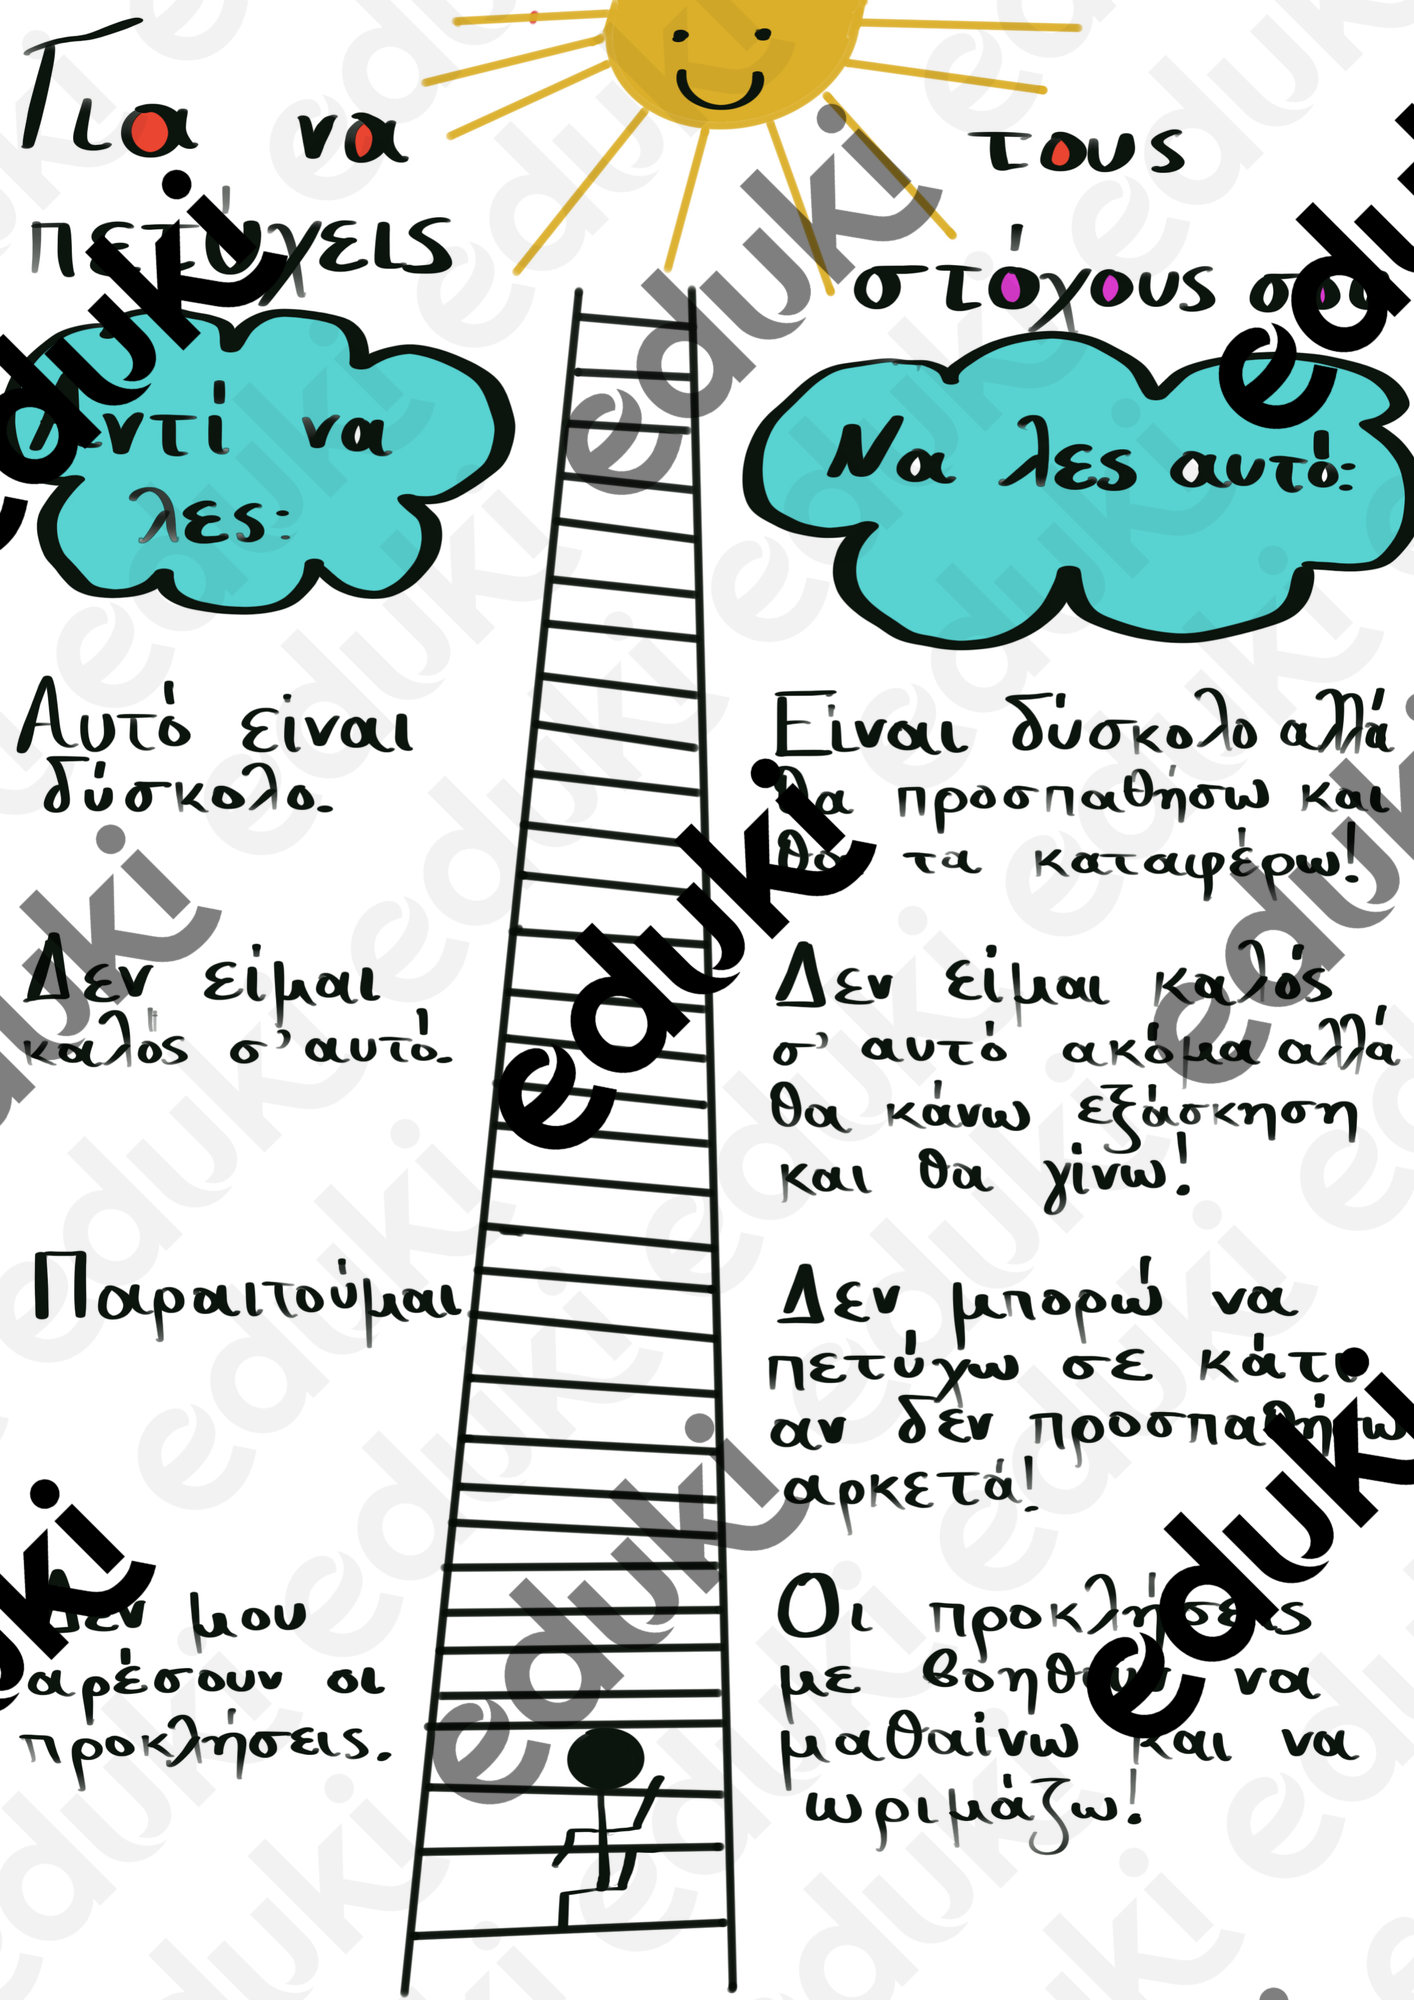 Για να
πετύχεις
τους
στόχους σου
Αντί να
λες:
Να λες αυτό:
Αυτό είναι
δύσκολο.
Είναι δύσκολο αλλά
θα προσπαθήσω και
θα τα καταφέρω!
Δεν είμαι
καλός σ' αυτό.
Δεν είμαι καλός
σ' αυτό ακόμα αλλά
θα κάνω εξάσκηση
και θα γίνω!
Παραιτούμαι
Δεν μπορώ να
πετύχω σε κάτι
αν δεν προσπαθήσω
αρκετά!
Δεν μου
αρέσουν οι
προκλήσεις.
Οι προκλήσεις
με βοηθούν να
μαθαίνω και να
ωριμάζω!
eduki
eduki
eduki
eduki
eduki
eduki
eduki
eduki
eduki